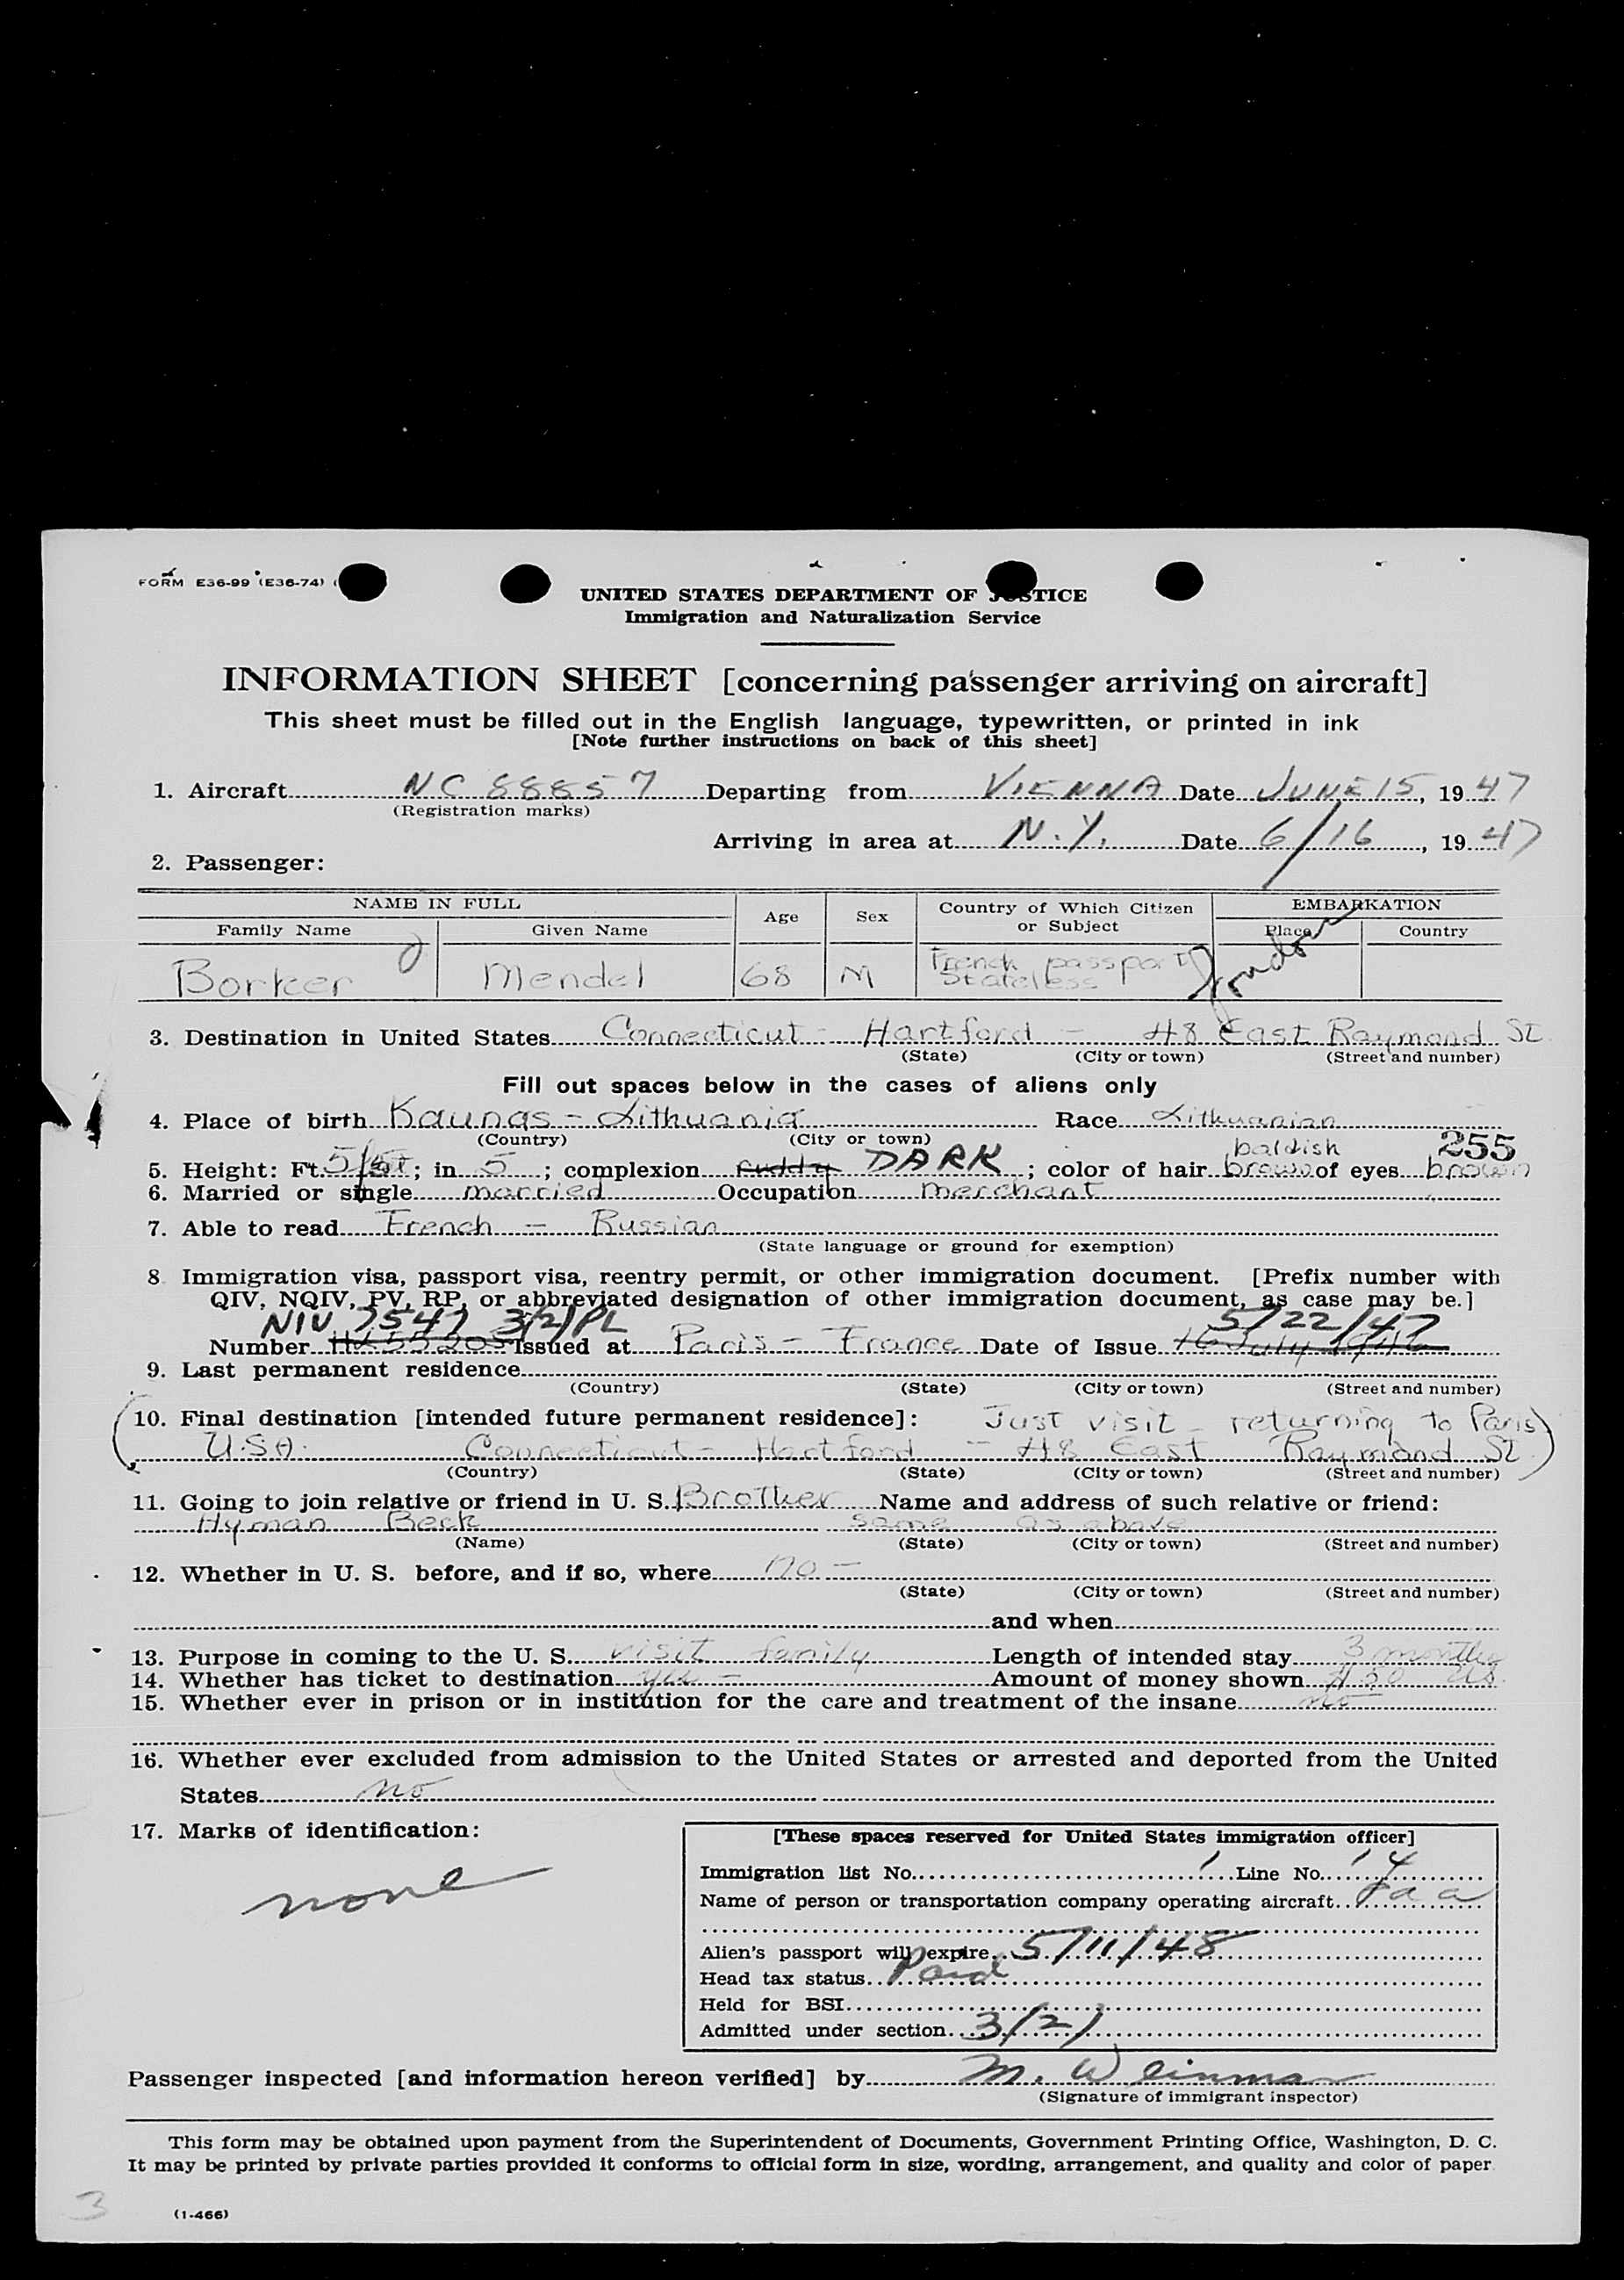 FORM E36-99 (E36-74) (
UNITED STATES DEPARTMENT OF JUSTICE
Immigration and Naturalization Service
INFORMATION SHEET [concerning passenger arriving on aircraft]
This sheet must be filled out in the English language, typewritten, or printed in ink
[Note further instructions on back of this sheet]
1. Aircraft NC 88857 Departing from VIENNA Date JUNE 15, 1947
(Registration marks)
Arriving in area at N.Y. Date 6/16, 1947
2. Passenger:
NAME IN FULL Age Sex Country of Which Citizen or Subject EMBARKATION
Family Name Given Name Place Country
Borker Mendel 68 M French passport Stateless London
3. Destination in United States Connecticut - Hartford - 48 East Raymond St
(State) (City or town) (Street and number)
Fill out spaces below in the cases of aliens only
4. Place of birth Kaunas - Lithuania Race Lithuanian
(Country) (City or town)
baldish 255
5. Height: Ft. 5; in. 5; complexion ruddy DARK; color of hair brown of eyes brown
6. Married or single married Occupation merchant
7. Able to read French - Russian
(State language or ground for exemption)
8 Immigration visa, passport visa, reentry permit, or other immigration document. [Prefix number with
QIV, NQIV, PV, RP, or abbreviated designation of other immigration document, as case may be.]
NIV 7547 3(2)PL 5/22/47
Number Issued at Paris - France Date of Issue 16 July 1946
9. Last permanent residence
(Country) (State) (City or town) (Street and number)
10. Final destination [intended future permanent residence]: Just visit - returning to Paris
U.S.A. Connecticut - Hartford - 48 East Raymond St.
(Country) (State) (City or town) (Street and number)
11. Going to join relative or friend in U. S. Brother Name and address of such relative or friend:
Hyman Beck same as above
(Name) (State) (City or town) (Street and number)
12. Whether in U. S. before, and if so, where no -
(State) (City or town) (Street and number)
and when
13. Purpose in coming to the U. S. visit family Length of intended stay 3 months
14. Whether has ticket to destination yes - Amount of money shown $ 50 US
15. Whether ever in prison or in institution for the care and treatment of the insane no
16. Whether ever excluded from admission to the United States or arrested and deported from the United
States no
17. Marks of identification:
none
[These spaces reserved for United States immigration officer]
Immigration list No. 1 Line No. 14
Name of person or transportation company operating aircraft Paa
Alien's passport will expire 5/11/48
Head tax status Paid
Held for BSI
Admitted under section 3(2)
Passenger inspected [and information hereon verified] by M. Weinman
(Signature of immigrant inspector)
This form may be obtained upon payment from the Superintendent of Documents, Government Printing Office, Washington, D. C.
It may be printed by private parties provided it conforms to official form in size, wording, arrangement, and quality and color of paper
3
(1-466)